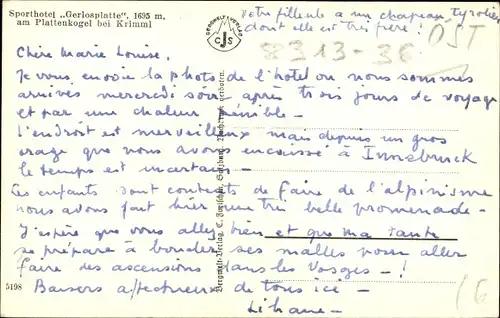 Sporthotel „Gerlosplatte“, 1695 m,
am Plattenkogel bei Krimml
BERGWELT VERLAG
CJS
votre fillente a un chapeau tyrolien
dont elle est très fière!
ÖST
8313-36
Chère Marie Louise.
Je vous envoie la photo de l'hotel ou nous sommes
arrivés mercredi soir après trois jours de voyage
et par une chaleur pénible -
l'endroit est merveilleux mais depuis un gros
orage que nous avons encaissé à Innsbruck
le temps est incertain -
Les enfants sont contents de faire de l'alpinisme
nous avons fait hier une très belle promenade -
J'espère que vous allez bien et que ma tante
se prépare à boucler ses malles pour aller
faire des ascensions dans les Vosges - !
Baisers affectueux de tous ici -
Liliane -
5198
Bergwelt-Verlag, C. Jurischek, Salzburg. Nachdruck verboten.
(6